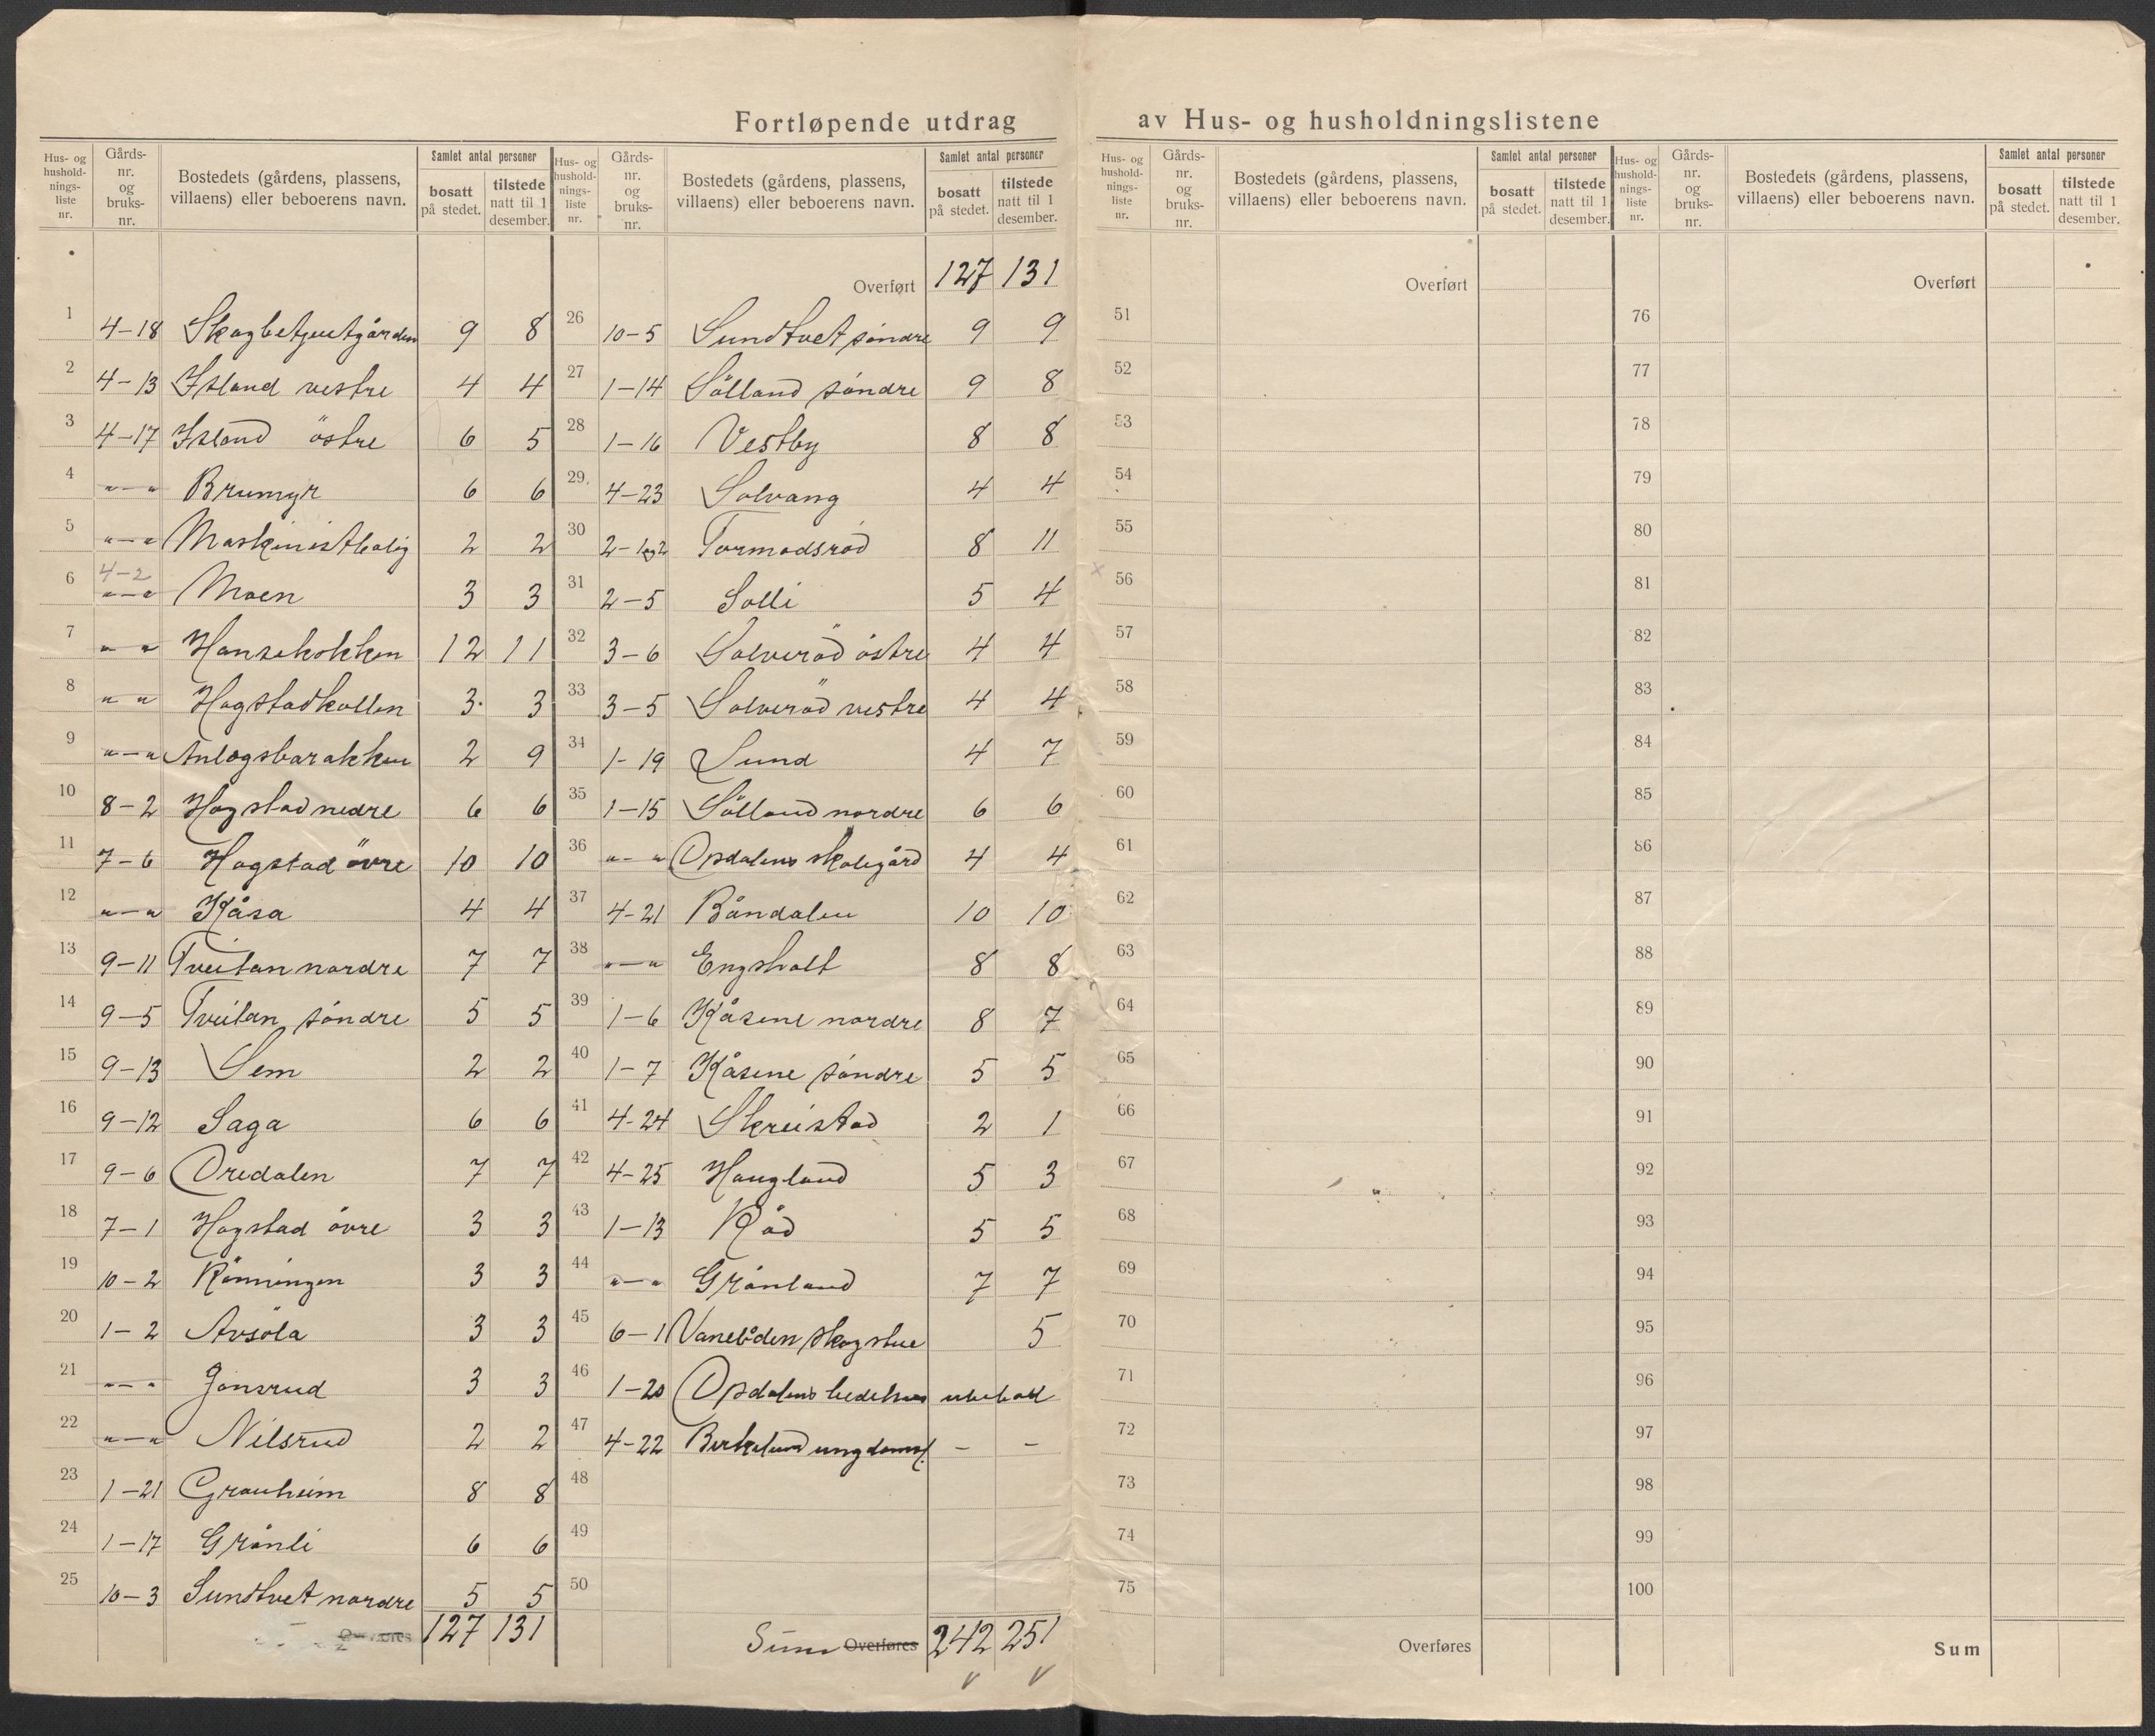 Fortløpende utdrag av Hus- og husholdningslistene
Hus- og husholdningsliste nr. | Gårds-nr. og bruks-nr. | Bostedets (gårdens, plassens, villaens) eller beboerens navn. | Samlet antal personer bosatt på stedet. | tilstede natt til 1 desember.
1 4-18 Skogbetjentgården 9 8
2 4-13 Island vestre 4 4
3 4-17 Island östre 6 5
4 "-" Brumyr 6 6
5 "-" Maskinistbolig 2 2
6 4-2 "-" Moen 3 3
7 " " Hansekokken 12 11
8 " " Hogstadkollen 3 3
9 "-" Anlogsbarakken 2 9
10 8-2 Hogstad nedre 6 6
11 7-6 Hogstad övre 10 10
12 "-" Kåsa 4 4
13 9-11 Tveitan nordre 7 7
14 9-5 Tveitan söndre 5 5
15 9-13 Sem 2 2
16 9-12 Saga 6 6
17 9-6 Oredalen 7 7
18 7-1 Hogstad övre 3 3
19 10-2 Rönningen 3 3
20 1-2 Avsöla 3 3
21 "-" Jonsrud 3 3
22 "-" Nilsrud 2 2
23 1-21 Granheim 8 8
24 1-17 Grönli 6 6
25 10-3 Sundtvet nordre 5 5
Overføres 127 131
Hus- og husholdningsliste nr. | Gårds-nr. og bruks-nr. | Bostedets (gårdens, plassens, villaens) eller beboerens navn. | Samlet antal personer bosatt på stedet. | tilstede natt til 1 desember.
Overført 127 131
26 10-5 Sundtvet söndre 9 9
27 1-14 Sölland söndre 9 8
28 1-16 Vestby 8 8
29 4-23 Solvang 4 4
30 2-1og2 Tormodsröd 8 11
31 2-5 Solli 5 4
32 3-6 Solveröd östre 4 4
33 3-5 Solveröd vestre 4 4
34 1-19 Lund 4 7
35 1-15 Sölland nordre 6 6
36 "-" Opdalens skolegård 4 4
37 4-21 Båndalen 10 10
38 "-" Engsholt 8 8
39 1-6 Kåsene nordre 8 7
40 1-7 Kåsene söndre 5 5
41 4-24 Skreistad 2 1
42 4-25 Haugland 5 3
43 1-13 Röd 5 5
44 "-" Grönland 7 7
45 6-1 Vanebuden skogstue 5
46 1-20 Opdalens bedehus ubebodd
47 4-22 Birkelund ungdomsl. - -
48
49
50
Sum Overføres 242 251
Hus- og husholdningsliste nr. | Gårds-nr. og bruks-nr. | Bostedets (gårdens, plassens, villaens) eller beboerens navn. | Samlet antal personer bosatt på stedet. | tilstede natt til 1 desember.
Overført
51
52
53
54
55
56
57
58
59
60
61
62
63
64
65
66
67
68
69
70
71
72
73
74
75
Overføres
Hus- og husholdningsliste nr. | Gårds-nr. og bruks-nr. | Bostedets (gårdens, plassens, villaens) eller beboerens navn. | Samlet antal personer bosatt på stedet. | tilstede natt til 1 desember.
Overført
76
77
78
79
80
81
82
83
84
85
86
87
88
89
90
91
92
93
94
95
96
97
98
99
100
Sum